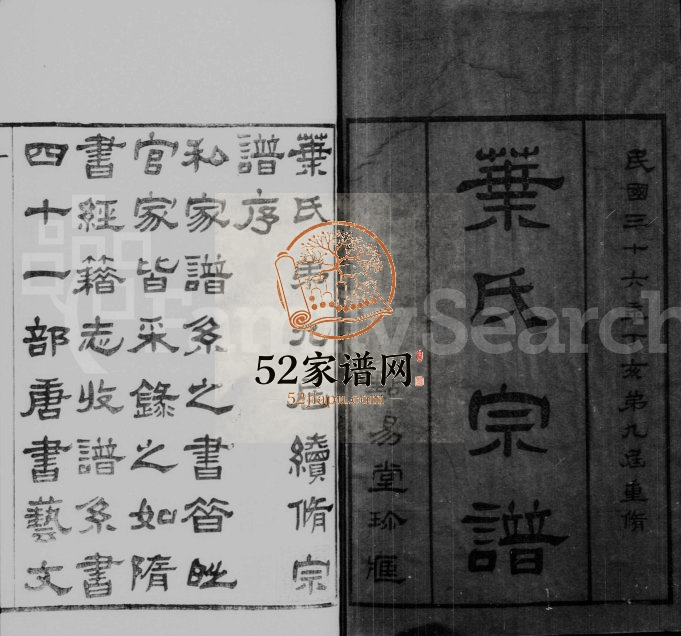 民國三十六年丁亥第九屆重脩
葉氏宗譜
易堂珍藏
葉氏第九屆續脩宗
譜序
私家譜系之書昔時
官家皆采錄之如隋
書經籍志收譜系書
四十一部唐書藝文
FamilySearch
52家谱网
52jiapu.com